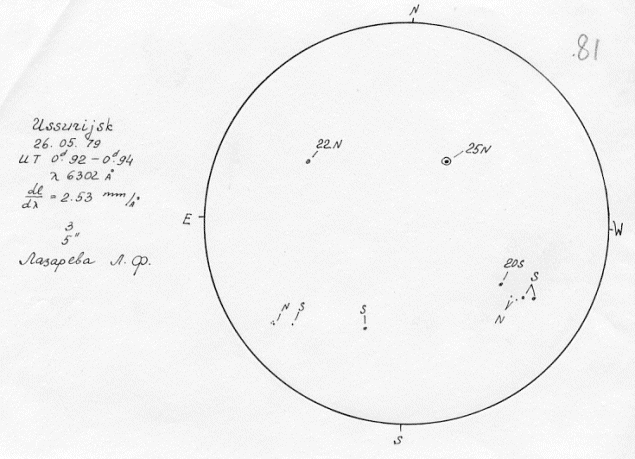 N
.81
Ussurijsk
26. 05. 79
UT 0ᵈ.92 – 0ᵈ.94
λ 6302 Å
dl/dλ = 2.53 mm/Å
3
5"
Лазарева Л. Ф.
22N
25N
E
W
20S
S
N
N S
S
S